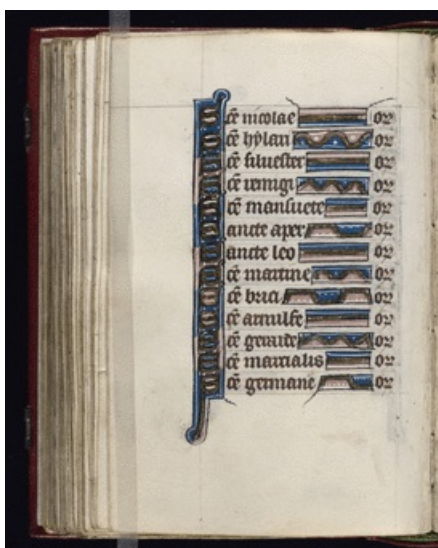 S cē nicolae or
S cē hylari or
S cē siluester or
S cē remigi or
S cē mansuete or
S ancte aper or
S ancte leo or
S cē martine or
S cē brici or
S cē arnulfe or
S cē or
S cē martialis or
S cē germane or